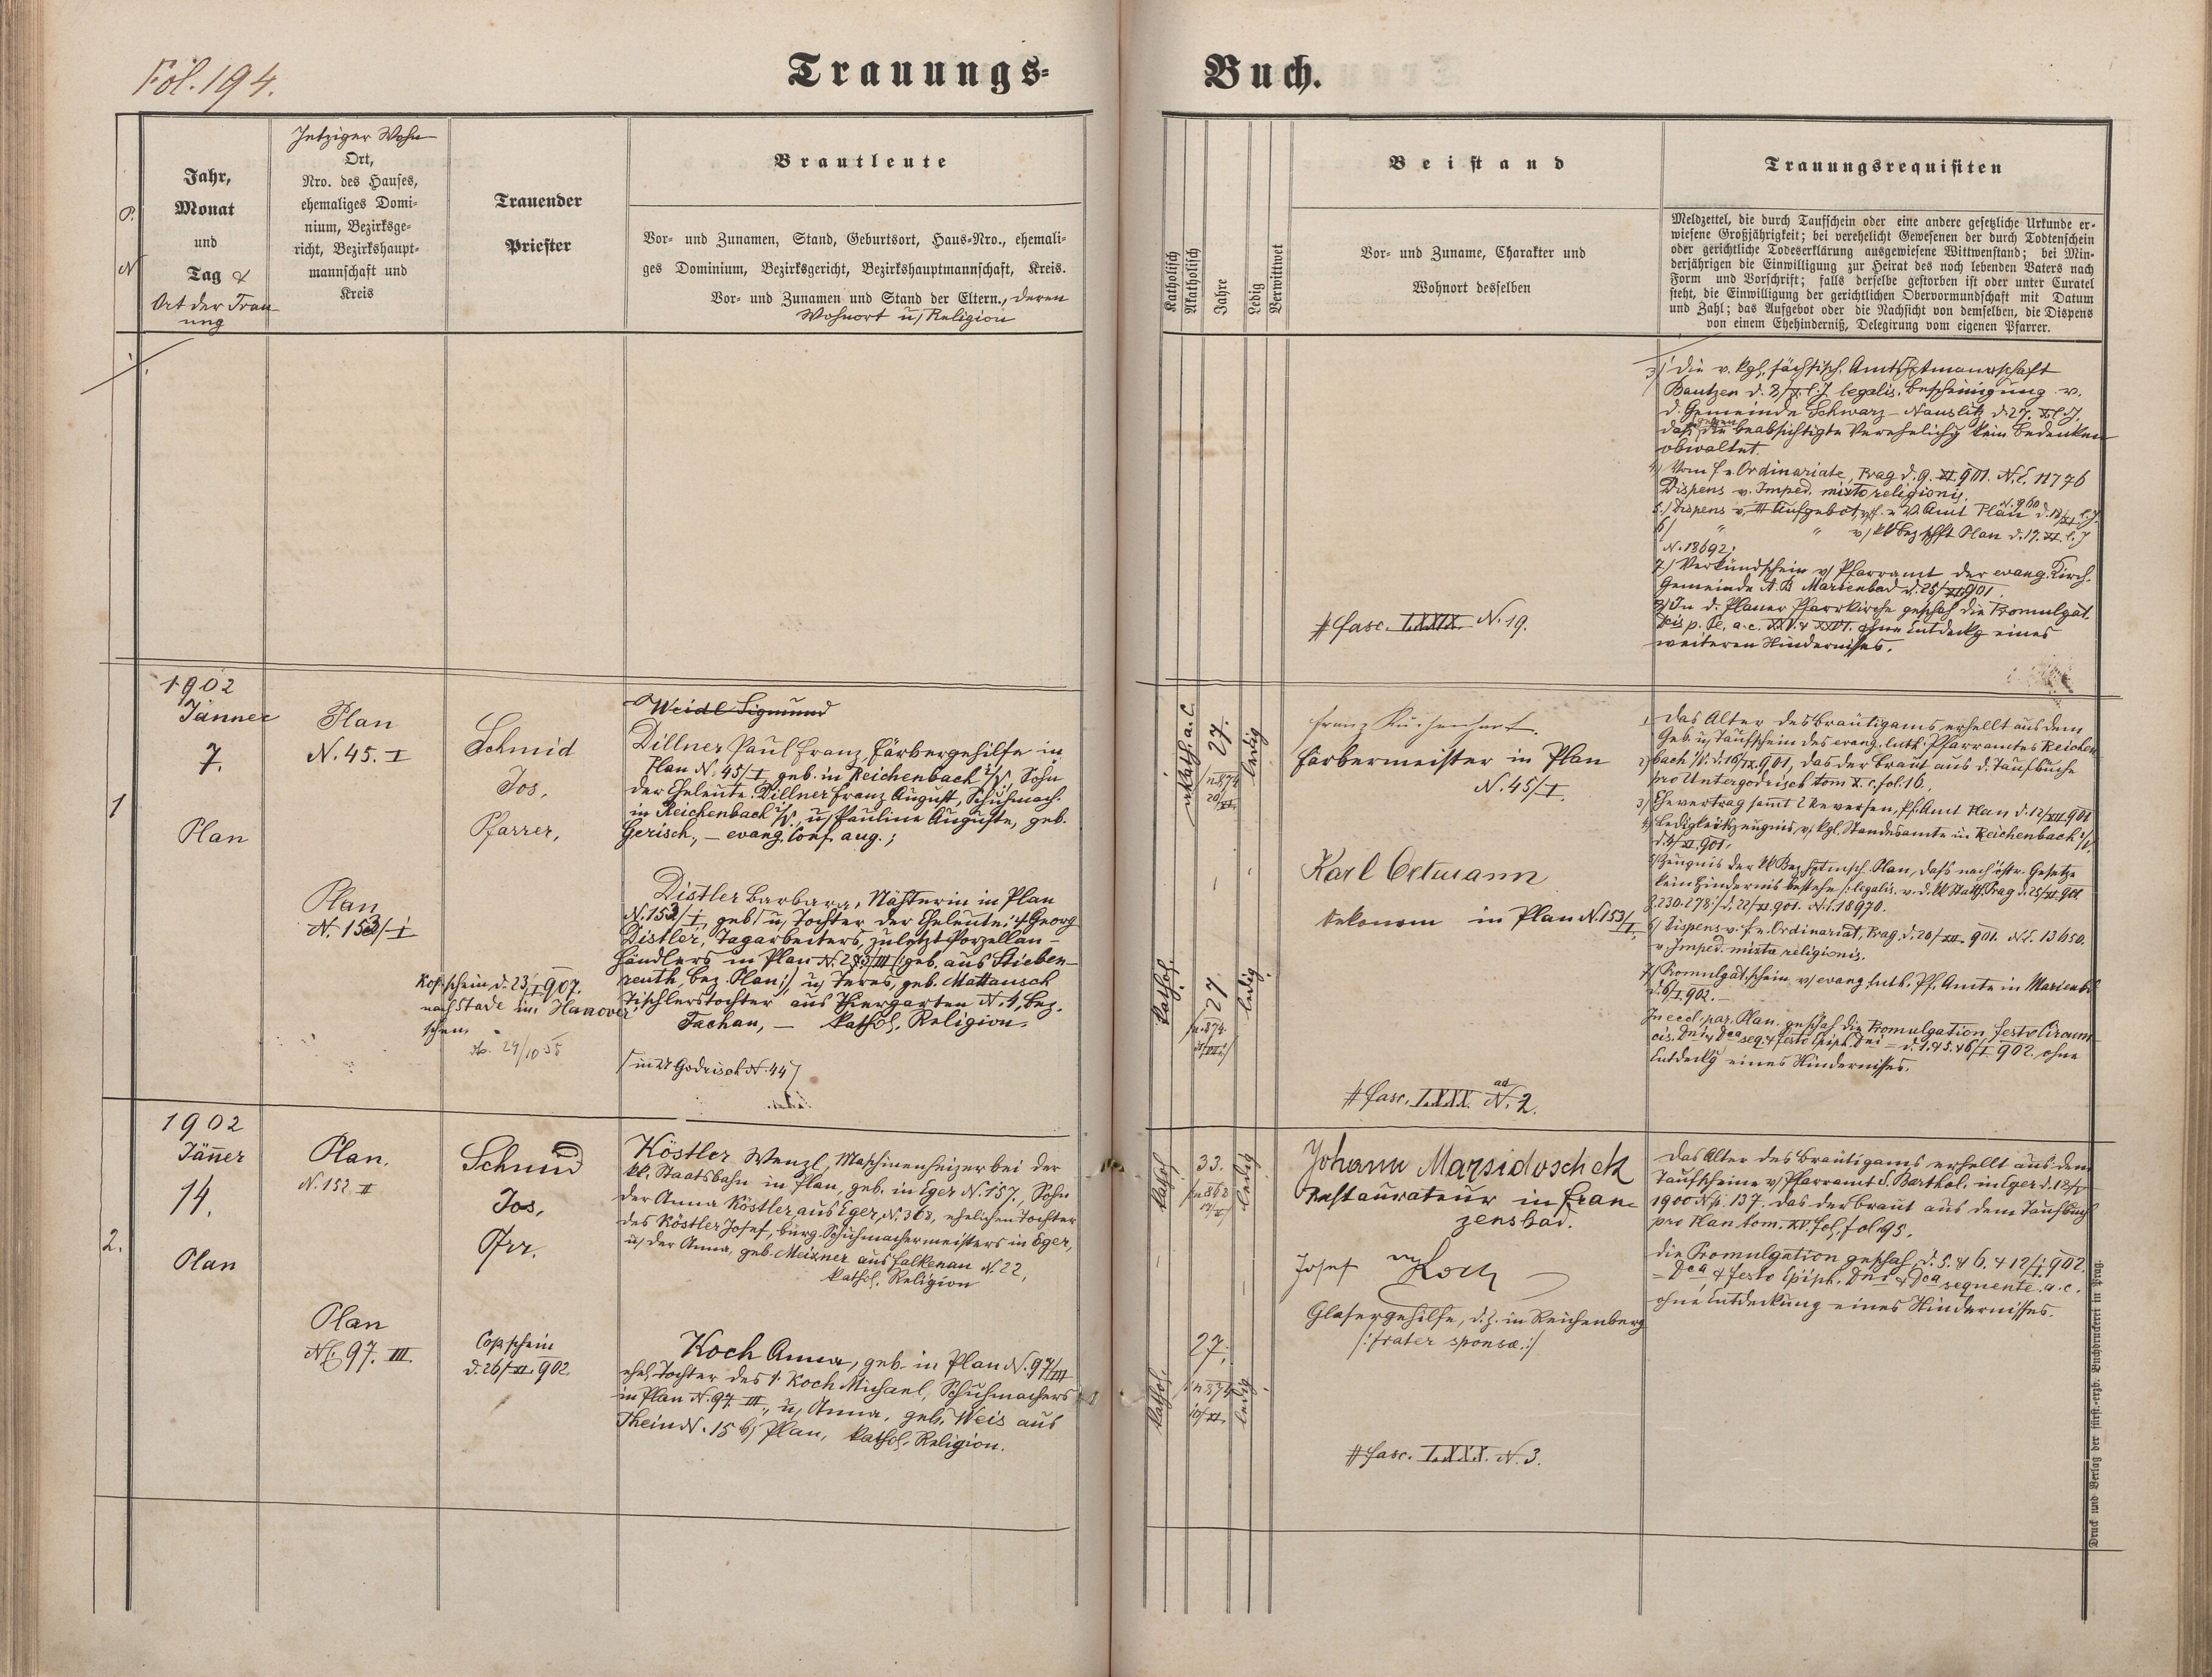 Fol. 194.
Trauungs-
Buch.
P.
N
Jahr,
Monat
und
Tag &
Ort der Trau-
ung
Jetziger Wohn-
Ort,
Nro. des Hauses,
ehemaliges Domi-
nium, Bezirksge-
richt, Bezirkshaupt-
mannschaft und
Kreis
Trauender
Priester
Brautleute
Vor- und Zunamen, Stand, Geburtsort, Haus-Nro., ehemali-
ges Dominium, Bezirksgericht, Bezirkshauptmannschaft, Kreis.
Vor- und Zunamen und Stand der Eltern., deren
Wohnort u/ Religion
Katholisch
Akatholisch
Jahre
Ledig
Verwittwet
Beistand
Vor- und Zuname, Charakter und
Wohnort desselben
Trauungsrequisiten
Meldzettel, die durch Taufschein oder eine andere gesetzliche Urkunde er-
wiesene Großjährigkeit; bei verehelicht Gewesenen der durch Todtenschein
oder gerichtliche Todeserklärung ausgewiesene Wittwenstand; bei Min-
derjährigen die Einwilligung zur Heirat des noch lebenden Vaters nach
Form und Vorschrift; falls derselbe gestorben ist oder unter Curatel
steht, die Einwilligung der gerichtlichen Obervormundschaft mit Datum
und Zahl; das Aufgebot oder die Nachsicht von demselben, die Dispens
von einem Ehehinderniß, Delegirung vom eigenen Pfarrer.
3/ Die v. kgl. sächsisch. Amtshptmannschaft
Bautzen d. 2/X. l. J. legalis. Bescheinigung v.
d. Gemeinde Schwarz-Nauslitz d. 27. X l. J.
daß gegen die beabsichtigte Verehelichg kein Bedenken
obwaltet.
4/ Vom f. e. Ordinariate, Prag d. 9. XI. 901. N.E. 11776
Dispens v. Imped. mixtae religionis.
5./ Dispens v. III Aufgebot, v/ f. e V. Amt Plan N. 960 d. 18/XI l. J.
6/ " " v/ kk Bez. hpft Plan d. 19. XI. l. J
N. 18692;
7./ Verkündschein v/ Pfarramt der evang. Kirch.
Gemeinde A. B Marienbad d. 25/XI 901.
8/ In d. Planer Pfarrkirche geschah die Promulgat.
bis p. Pe. a. c. XXV. & XXVI. ohne Entdeckg eines
weiteren Hindernisses.
# fasc. LXXIX. N. 19.
1
1902
Jänner
7.
Plan
Plan
N. 45. I
Schmid
Jos.
Pfarrer,
Weidl Sigmund
Dillner Paul Franz, Färbergehilfe in
Plan N. 45/I, geb. in Reichenbach i/V. Sohn
der Eheleute: Dillner Franz August, Schuhmach.
in Reichenbach i/V., u/ Pauline Auguste, geb.
Gerisch, – evang. Conf. aug.;
akath. a. C.
27.
/n. 874
20/XI.
ledig
Franz
Färbermeister in Plan
N. 45/I.
1, Das Alter des Bräutigams erhellt aus dem
Geb. u/ Taufschein des evang. luth. Pfarramtes Reichen-
bach i/V. d. 16/IX. 901, das der Braut aus d. Taufbuche
pro Untergodrisch tom X. c. fol. 16.
3/ Ehevertrag sammt 2 Reversen, Pf. Amt Plan d. 12/XII. 901
4/ Ledigkeitszeugnis v. kgl. Standesamte in Reichenbach i/V.
d. 4/XI. 901.
5/ Zeugnis der kk Bez. hptmsch. Plan, dass nach östr. Gesetze
kein Hindernis bestehe /: legalis. v. d. kk Statth. Prag d. 25/XI 901
z. 230.278:/ d. 22/XI. 901. N.E. 18970.
6/ Dispens v. f. e. Ordinariat, Prag, d. 20/XII. 901. N.E. 13450.
v. Imped. mixtae religionis.
7/ Promulgat. schein v/ evang. luth. Pf. Amte in Marienbad
d. 6/I 902. –
In eccl. par. Plan geschah die Promulgation festo Circum-
cis. Dni & Dca seq. & festo Epiph. Dni = d. 1. & 5. & 6/I. 902. ohne
Entdeckg eines Hindernisses.
Plan
N. 153/I
Distler Barbara, Nähterin in Plan
N. 153/I, geb. u/ Tochter der Eheleute: † Georg
Distler, Tagarbeiters, zuletzt Porzellan-
händlers in Plan N. 273/III (: geb. aus Stieben-
reuth, Bez. Plan:) u/ Teres, geb. Mattausch
Tischlerstochter aus Thiergarten N. 4, Bez.
Tachau, – kathol. Religion.
/ in U Godrisch N. 44 /
Kop. schein d. 23/I 907.
nach Stade im Hanover-
schen.
29/10 38
kathol.
27
/n. 874
ledig
Karl Ortmann
Oekonom in Plan N. 153/I.
# fasc. LXXX. ad N. 2.
2.
1902
Jänner
14.
Plan
Plan.
N. 152 II
Schmid
Jos.
Pfrr.
Köstler Wenzl, Maschinenheizer bei der
kk. Staatsbahn in Plan, geb. in Eger N. 157, Sohn
der Anna Köstler, aus Eger, N. 308, ehelichen Tochter
des Köstler Josef, bürg. Schuhmachermeisters in Eger,
u/ der Anna, geb. Meixner aus Falkenau N. 22,
kathol. Religion
kathol
33.
/n 868
ledig
Johann Marsidoschek
Restaurateur in Fran-
zensbad.
Das Alter des Bräutigams erhellt aus dem
Taufscheine v/ Pfarramt S. Barthol. in Eger d. 12/
1900 N. 137. das der Braut aus dem Taufbuch
pro Plan tom. XV fol. fol 95.
Die Promulgation geschah d. 5. & 6. & 12/I. 902.
= Dca & festo Epiph. Dni & Dca sequente. a. c.
ohne Entdeckung eines Hindernisses.
Plan
NC 97. III.
Cop. schein
d. 26/XI 902.
Koch Anna, geb. in Plan N. 97/III
ehel. Tochter des † Koch Michael, Schuhmachers
in Plan N. 97. III., u/ Anna, geb. Weis aus
Thein N. 15 b/ Plan, kathol. Religion.
kathol.
27.
/n 874
10/XI.
ledig
Josef Koch
Glasergehilfe, d. Z. in Reichenberg
/: frater sponsae :/
# fasc. LXXX. N. 3.
Druck und Verlag der fürst.-erzb. Buchdruckerei in Prag.